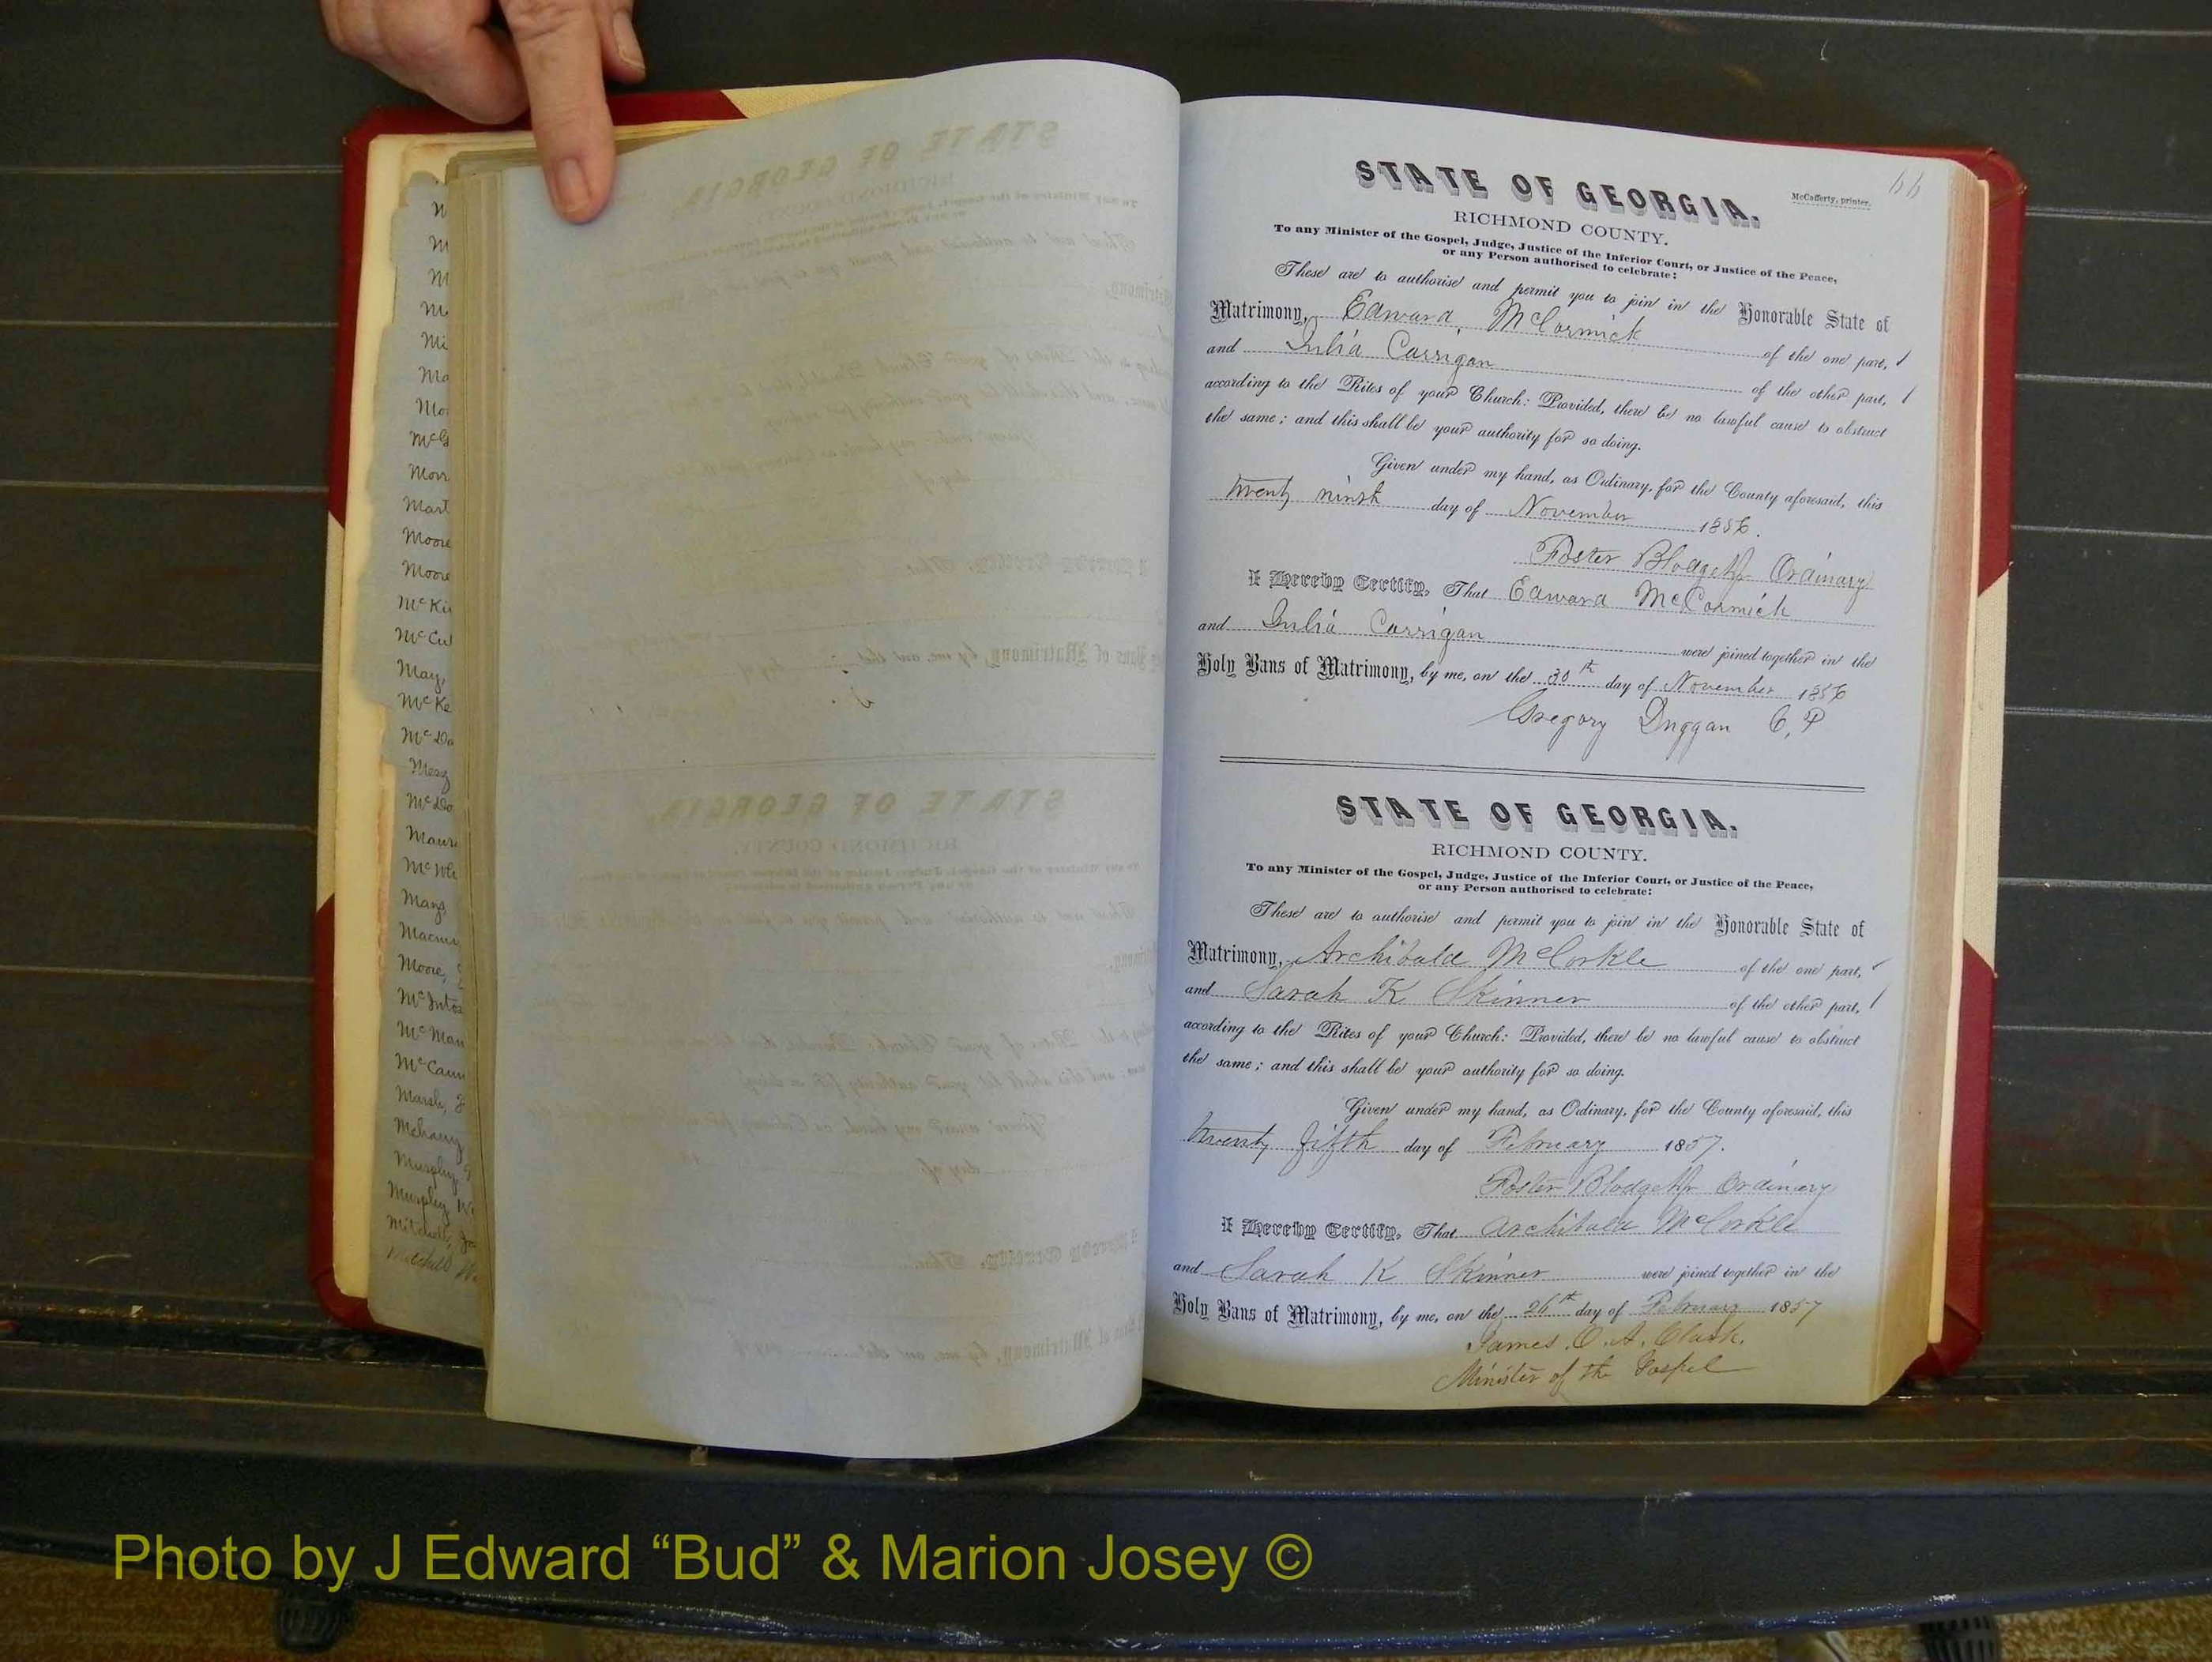 M
M
M
M
Mi
Mo
Mo
McG
Morr
Mart
Moore
Moore
McKi
McCul
May,
McKe
McDo
Merg
McDo
Maur
McWh
Mays
Macmu
Moore,
McIntos
McMan
McCann
Marsh, J
Meharry
Murphy
Murphy, W
Mitchell, Ja
Mitchell W
66
STATE OF GEORGIA.
McCafferty, printer.
RICHMOND COUNTY.
To any Minister of the Gospel, Judge, Justice of the Inferior Court, or Justice of the Peace,
or any Person authorised to celebrate:
These are to authorise and permit you to join in the Honorable State of
Matrimony, Edward McCormick of the one part,
and Julia Carrigan of the other part,
according to the Rites of your Church: Provided, there be no lawful cause to obstruct
the same; and this shall be your authority for so doing.
Given under my hand, as Ordinary, for the County aforesaid, this
twenty ninth day of November 1856.
Foster Blodget Jr Ordinary
I Hereby Certify, That Edward McCormick
and Julia Carrigan were joined together in the
Holy Bans of Matrimony, by me, on the 30th day of November 1856
Gregory Duggan C, P
STATE OF GEORGIA.
RICHMOND COUNTY.
To any Minister of the Gospel, Judge, Justice of the Inferior Court, or Justice of the Peace,
or any Person authorised to celebrate:
These are to authorise and permit you to join in the Honorable State of
Matrimony, Archibald McCorkle of the one part,
and Sarah K Skinner of the other part,
according to the Rites of your Church: Provided, there be no lawful cause to obstruct
the same; and this shall be your authority for so doing.
Given under my hand, as Ordinary, for the County aforesaid, this
twenty fifth day of February 1857.
Foster Blodget Jr Ordinary
I Hereby Certify, That Archibald McCorkle
and Sarah K Skinner were joined together in the
Holy Bans of Matrimony, by me, on the 26th day of February 1857
James. O. A. Clark.
Minister of the Gospel
Photo by J Edward “Bud” & Marion Josey ©